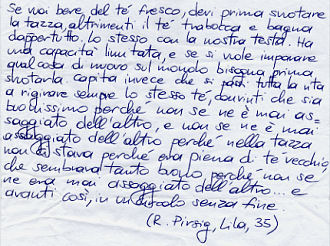 Se vuoi bere del tè fresco, devi prima svuotare
la tazza, altrimenti il tè trabocca e bagna
dappertutto. Lo stesso con la nostra testa. Ha
una capacità limitata, e se si vuole imparare
qualcosa di nuovo sul mondo bisogna prima
svuotarla. Capita invece che si passi tutta la vita
a rigirare sempre lo stesso tè, convinti che sia
buonissimo perché non se ne è mai as-
saggiato dell'altro, e non se ne è mai
assaggiato dell'altro perché nella tazza
non ci stava perché era piena di tè vecchio,
che sembrava tanto buono perché non se
ne era mai assaggiato dell'altro... e
avanti così, in un circolo senza fine.
(R. Pirsig, Lila, 35)